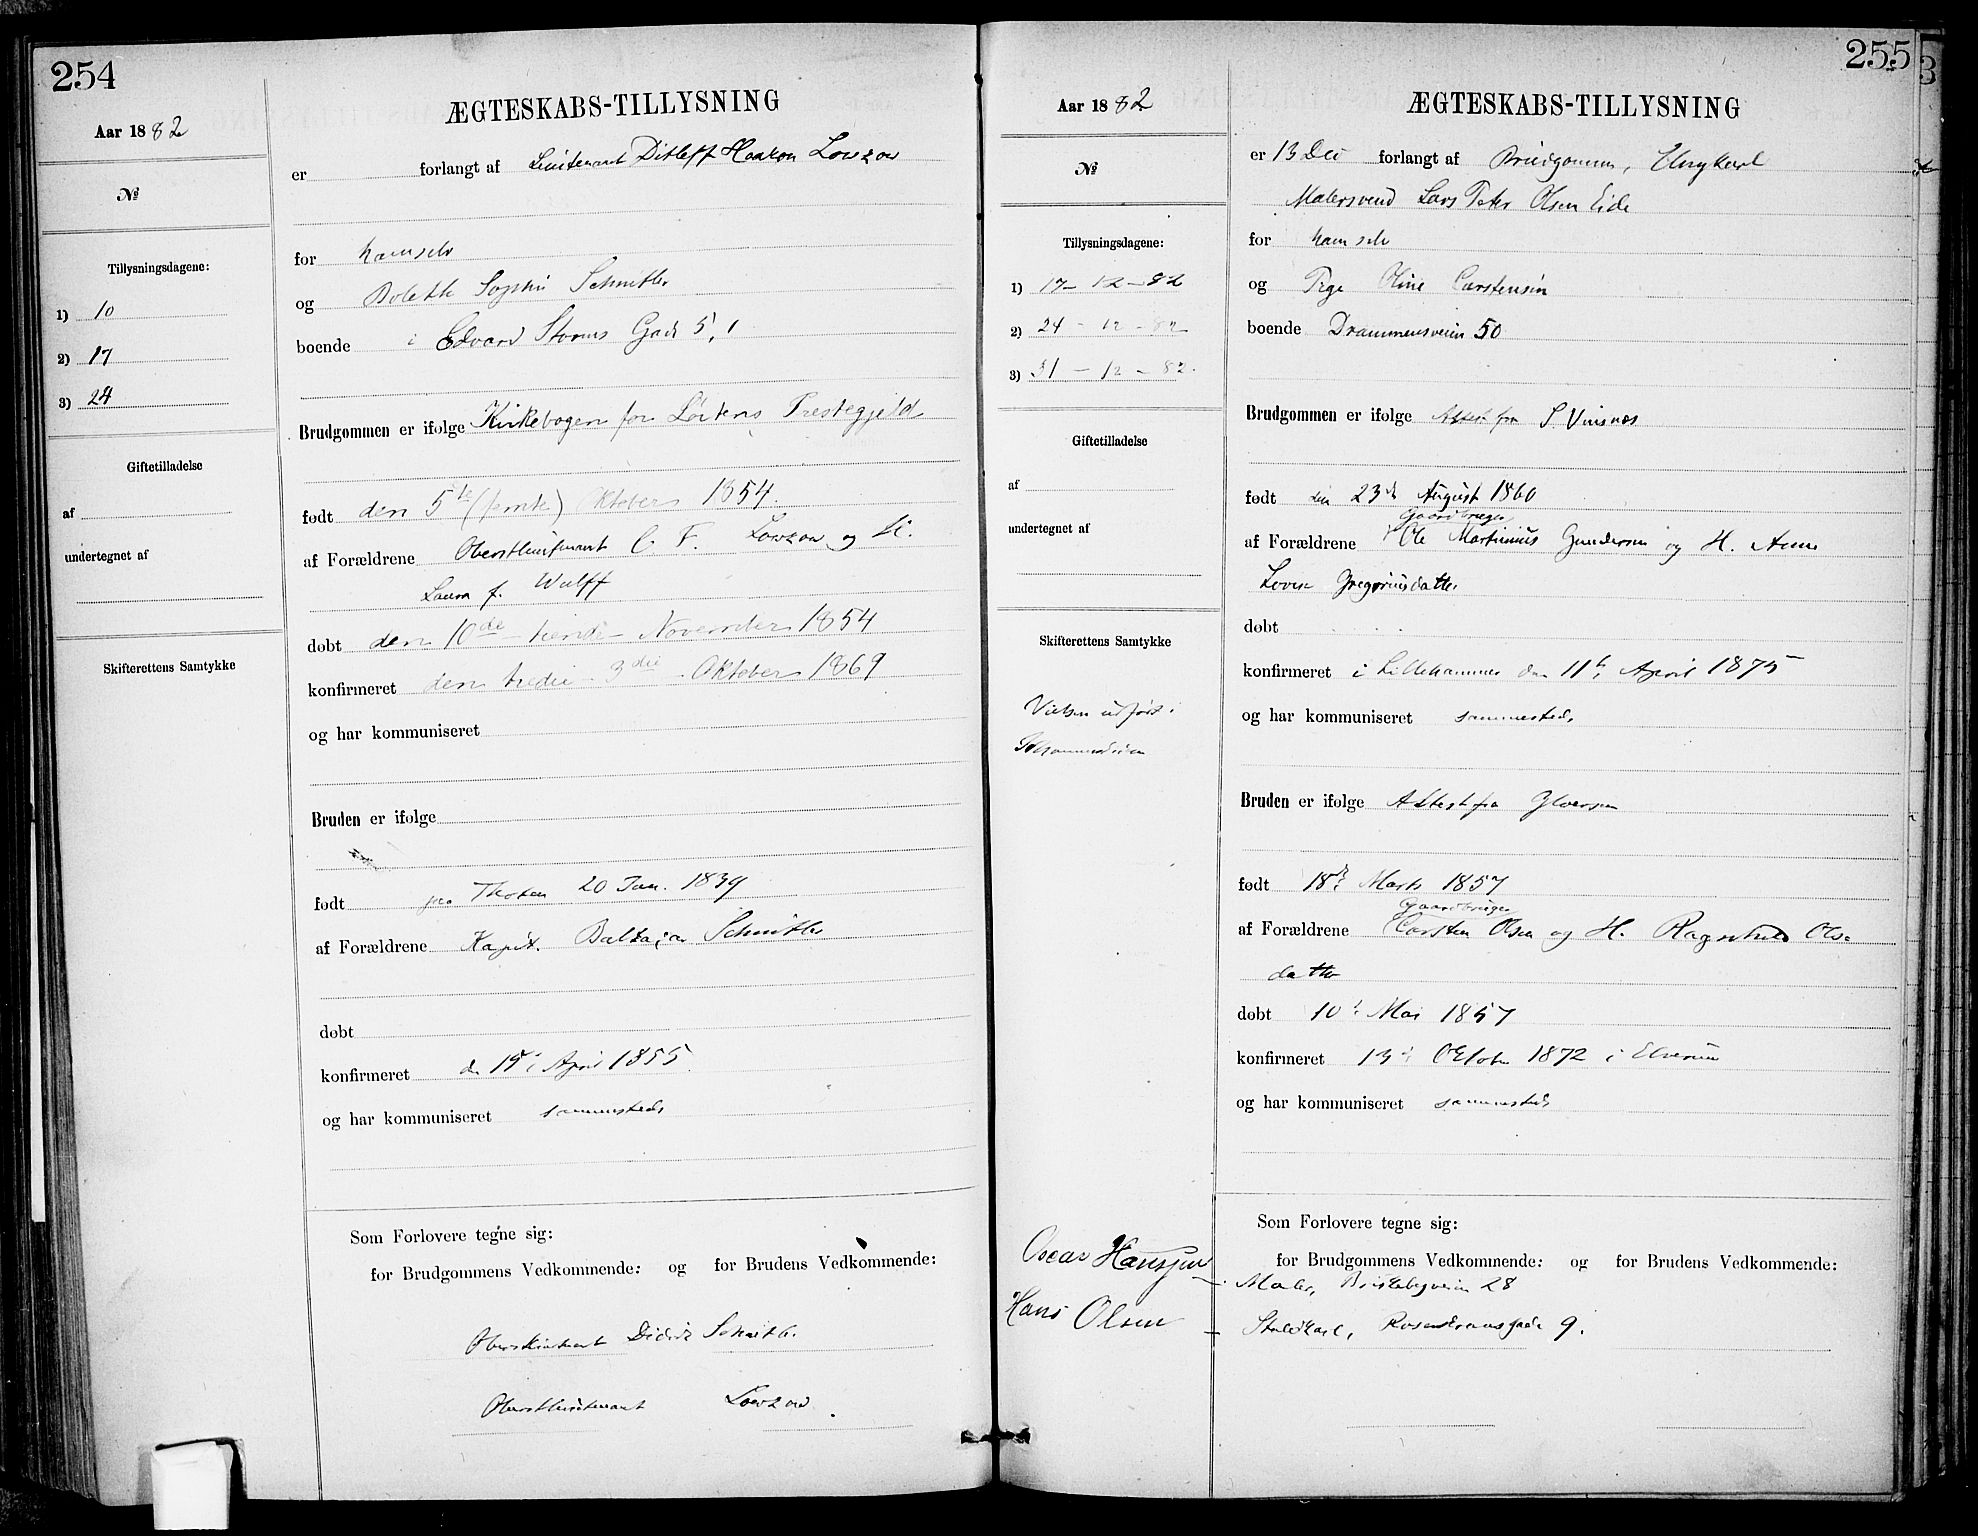 254
Aar 1882
№
Tillysningsdagene:
1) 10
2) 17
3) 24
Giftetilladelse
af
undertegnet af
Skifterettens Samtykke
ÆGTESKABS-TILLYSNING
er forlangt af Lieutenant Ditleff Haakon Lowzow
for ham selv
og Bolette Sophie Schnitler
boende i Edvard Storms Gade 5, 1
Brudgommen er ifølge Kirkebogen for Løitens Prestegjeld
født den 5te (femte) Oktober 1854.
af Forældrene Oberstlieutenant C. F. Lowzow og
Laura f. Wulff
døbt den 10de tiende November 1854
konfirmeret den tredie 3die Oktober 1869
og har kommuniseret
Bruden er ifølge
født paa Thoten 20 Jan. 1839
af Forældrene Kapt. Baltazar Schnitler
døbt
konfirmeret April 1855
og har kommuniseret sammesteds
Som Forlovere tegne sig:
for Brudgommens Vedkommende: og for Brudens Vedkommende:
Oberstlieutenant Didrik Schnitler
Oberstlieutenant Lowzow.
255
Aar 1882
№
Tillysningsdagene:
1) 17 - 12 - 82
2) 24 - 12 - 82
3) 31 - 12 - 82.
Giftetilladelse
af
undertegnet af
Skifterettens Samtykke
Vielsen udført i
Oscar Hanssen
Hans Olsen
ÆGTESKABS-TILLYSNING
er 13 Dec forlangt af Brudgommen, Ungkarl
Malersvend Lars Peter Olsen Eide
for ham selv
og Pige Oline Carstensen
boende Drammensveien 50
Brudgommen er ifølge Attest fra S. Vinsnæs
født den 23de August 1860
Gaardbruger
af Forældrene Ole Martinius Gundersen og H. Anne
Lovise Gregoriusdatter
døbt
konfirmeret i Lillehammer den 11te April 1875
og har kommuniseret sammesteds
Bruden er ifølge Attest fra
født 18de Marts 1857
Gaardbruger
af Forældrene Carsten Olsen og H. Ragnhild Ols-
datter
døbt 10de Mai 1857
konfirmeret 13de October 1872 i Elverum
og har kommuniseret sammesteds
Som Forlovere tegne sig:
for Brudgommens Vedkommende: og for Brudens Vedkommende:
Maler, Briskebyveien 28
Staldkarl, Rosenkransgade 9.